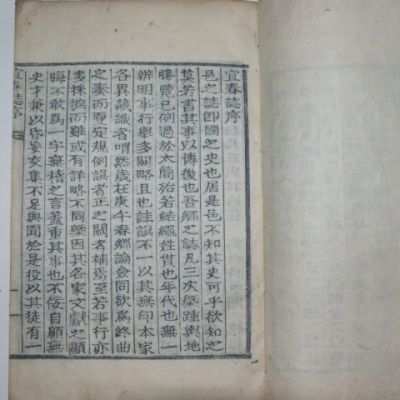 宜春誌序
邑之誌卽國之史也居是邑不知其史可乎欲知之
莫若書其事以傳後也吾鄕之誌凡三次槩踵輿地
勝覽已例過於太簡殆若結繩姓貫也年代也無一
辨明事行擧多闕略且也註誤不一以其無印本家
各異藏識者喟然歲在庚午春鄕論僉同欲爲終曲
之奏而釐定規例誤者正之闕者補焉至若事行亦
多採摭而雖或有詳略不同槩因其各家文獻之顯
晦不敢爲一字無稽之言蓋重其事也不佞自顧無
史才兼以昏妄文集不足與聞於是役以其徒有一
宜春誌序